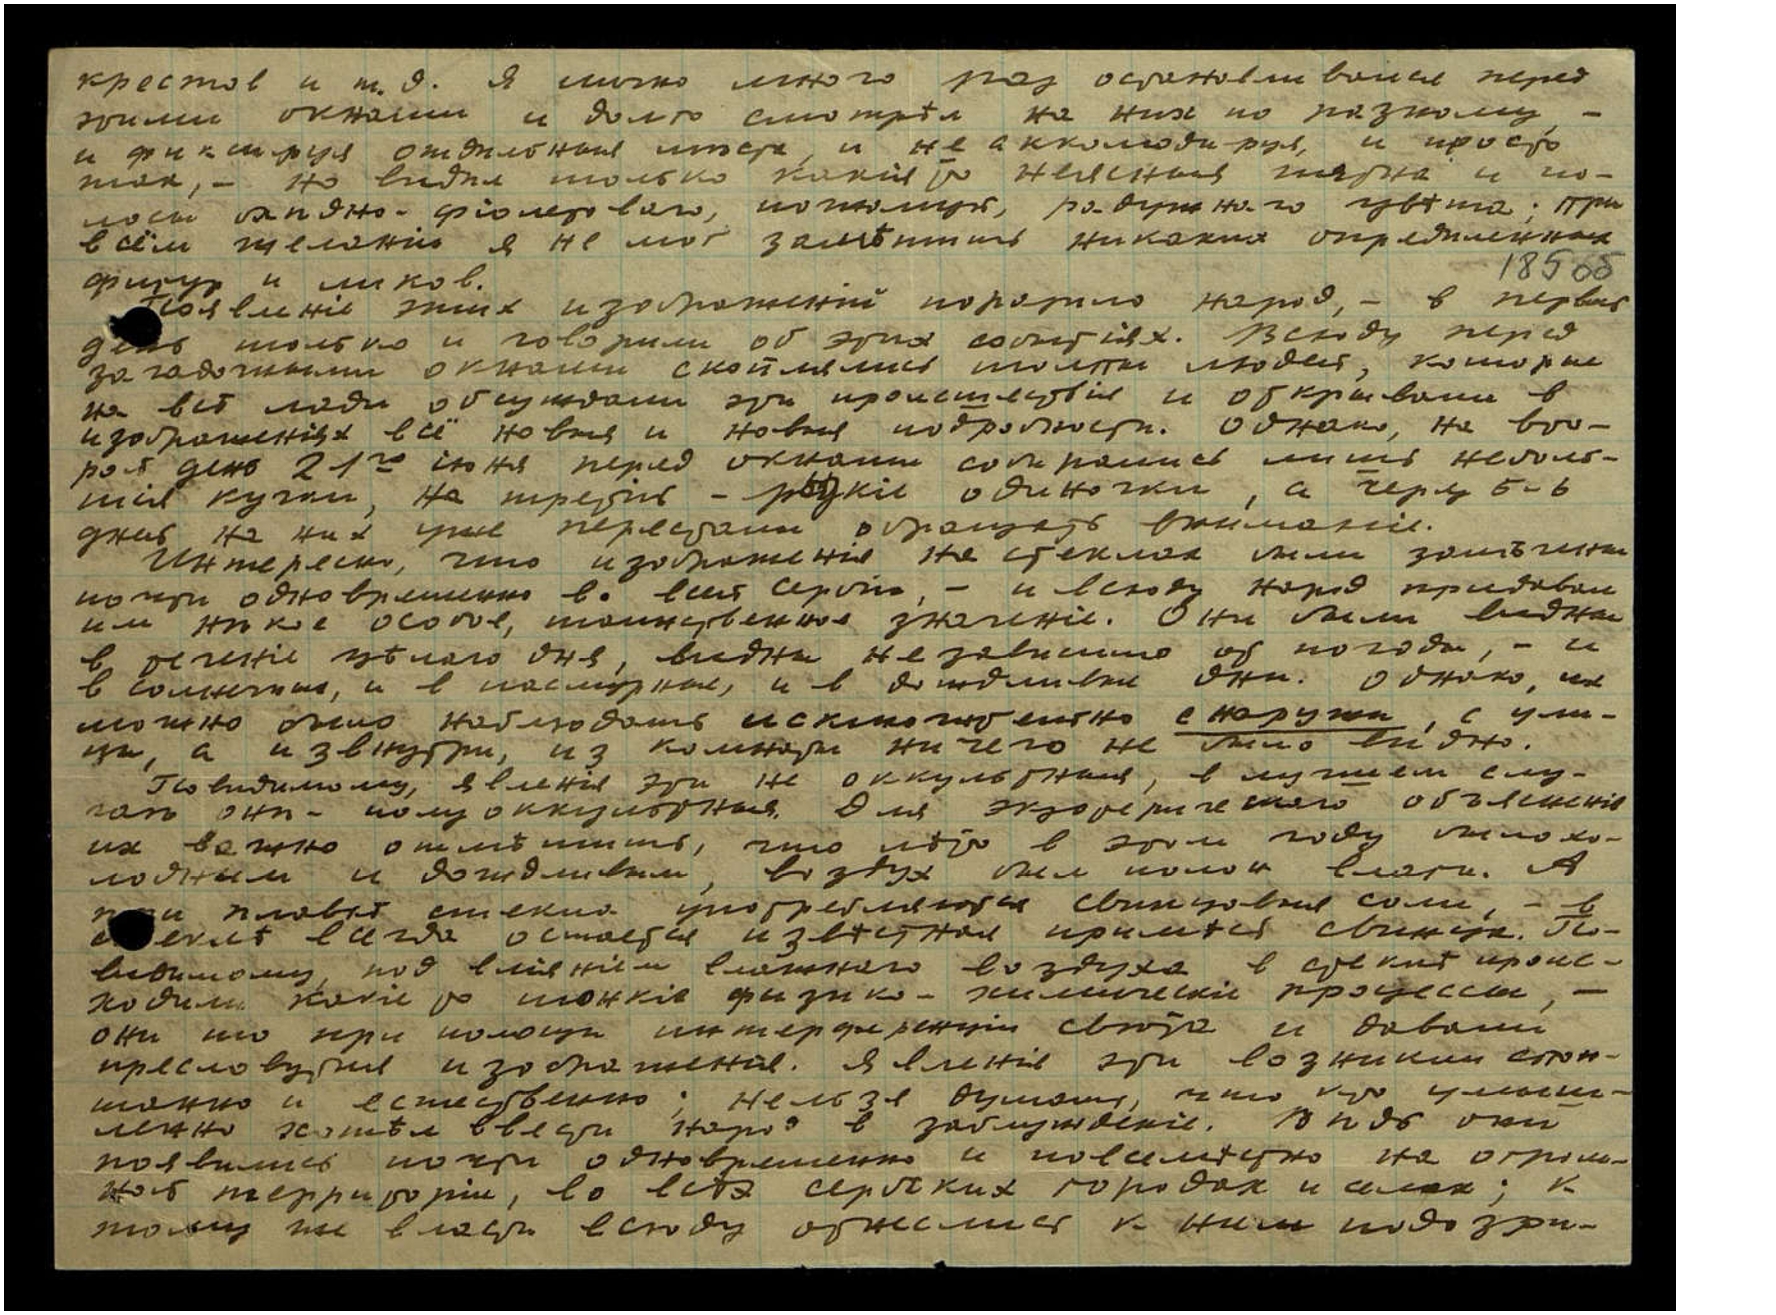 крестов и т.д. Я лично много раз останавливался перед
этими окнами и долго смотрѣл на них по разному, –
и фиксируя отдѣльныя мѣста, и не аккомодируя, и просто
так, – но видѣл только какія то неясныя пятна и по-
лосы блѣдно-фіолетоваго, пожалуй, радужнаго цвѣта; при
всём желаніи я не мог замѣтить никаких опредѣленных
фигур и ликов.
18565
Появленіе этих изображеній поразило народ, – в первый
день только и говорили об этих событіях. Всюду перед
загадочными окнами скоплялись толпы людей, которые
на всѣ лады обсуждали эти происшествія и открывали в
изображеніях всё новыя и новыя подробности. Однако, на вто-
рой день 21го іюня перед окнами собирались лишь неболь-
шія кучки, на третій – рѣдкіе одиночки, а через 5-6
дней на них уже перестали обращать вниманіе.
Интересно, что изображенія на стеклах были замѣчены
почти одновременно во всей Сербіи, – и всюду народ придавал
им нѣкое особое, таинственное значеніе. Они были видны
в теченіе цѣлаго дня, видны независимо от погоды, – и
в солнечные, и в пасмурные, и в дождливые дни. Однако, их
можно было наблюдать исключительно снаружи, с ули-
цы, а извнутри, из комнаты ничего не было видно.
Повидимому, явленія эти не оккультныя, в лучшем слу-
чаѣ они – полуоккультныя. Для экзотерическаго объясненія
их важно отмѣтить, что лѣто в этом году было хо-
лодным и дождливым, воздух был полон влаги. А
при плавкѣ стекла употребляются свинцовыя соли, – в
стеклѣ всегда остаётся извѣстная примѣсь свинца. По-
видимому, под вліяніем влажнаго воздуха в стеклѣ проис-
ходили какіе то тонкіе физико-химическіе процессы, –
они то при помощи интерференціи свѣта и давали
пресловутыя изображенія. Явленія эти возникли спон-
танно и естественно; нельзя думать, что кто умыш-
ленно хотѣл ввести народ в заблужденіе. Вѣдь они
появились почти одновременно и повсемѣстно на огром-
ной территоріи, во всѣх сербских городах и селах; к
тому же власти всюду отнеслись к ним подозри-